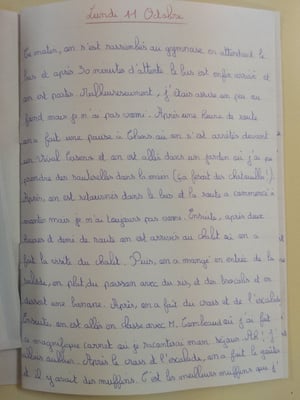 Lundi 11 Octobre
Ce matin, on s'est rassemblés au gymnase en attendant le
bus et après 30 minutes d'attente le bus est enfin arrivé et
on est partis. Malheureusement, j'étais assise un peu au
fond mais je n'ai pas vomi. Après une heure de route
on a fait une pause à Thiers où on s'est arrêtés devant
un Vival Casino et on est allés dans un jardin où j'ai pu
prendre des sauterelles dans la main (ça faisait des chatouilles!).
Après, on est retournés dans le bus et la route a commencé à
monter mais je n'ai toujours pas vomi. Ensuite, après deux
heures et demi de route on est arrivés au chalet où on a
fait la visite du chalet. Puis, on a mangé en entrée de la
salade, en plat du poisson avec du riz, et des brocolis et en
dessert une banane. Après, on a fait du cross et de l'escalade
Ensuite, on est allés en classe avec M. où j'ai fait
ce magnifique carnet où je raconterai mon séjour. Ah! J'
allais oublier. Après le cross et l'escalade, on a fait le goûter
et il y avait des muffins. C'est les meilleurs muffins que j'